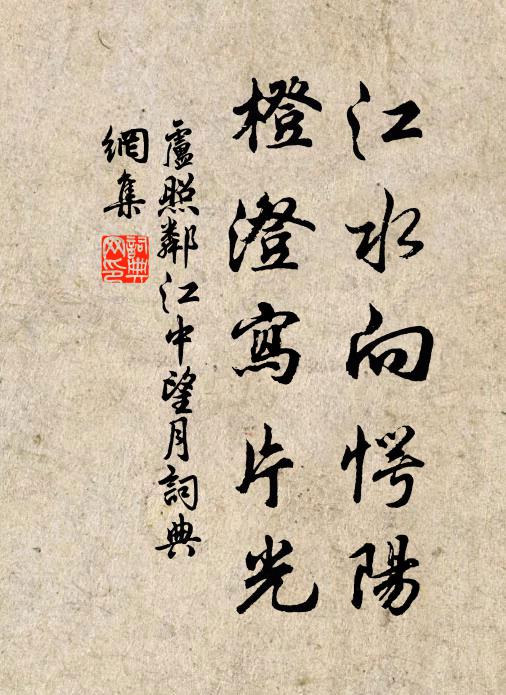 江水向愕陽
橙澄寫片光
盧照鄰江中望月詞典
網集
詞典
网印